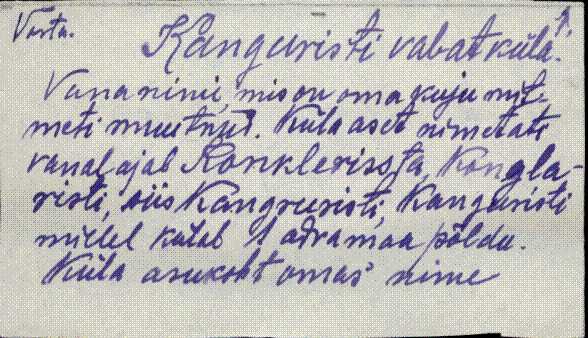 Vastu.
Kanguristi vabatküla. 1.
Vana nimi, mis on oma kuju mit-
meti muutnud. Küla aset nimetati
vanal ajal Konklerissta, Kongla-
risti, siis Kangruristi, Kanguristi
millel küläl 1 adramaa põldu.
Küla asukoht omas nime